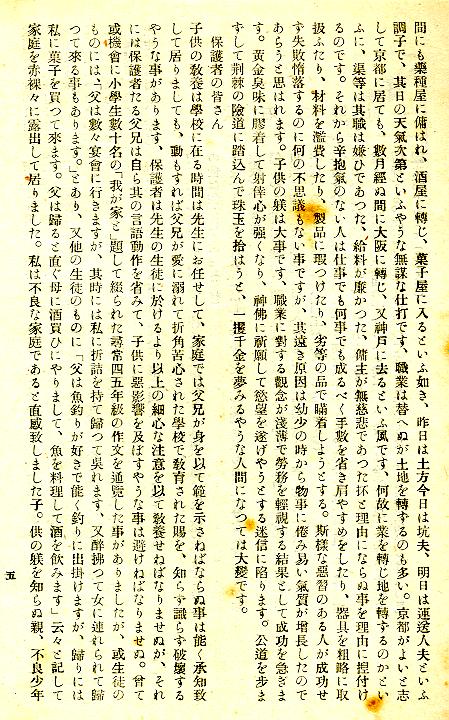 間にも藥種屋に傭はれ、酒屋に轉じ、菓子屋に入るといふ如き、昨日は土方今日は坑夫、明日は運送人夫といふ
調子で、其日の天氣次第といふやうな無謀な仕打です、職業は替へぬが土地を轉ずるのも多い。京都がよいと志
して京都に居ても、數月經ぬ間に大阪に轉じ、又神戸に去るといふ風です、何故に業を轉じ地を轉ずるのかとい
ふに、渠等は其職は嫌ひであつた、給料が廉かつた、傭主が無慈悲であつた抔と理由にならぬ事を理由に揑付け
るのです。それから辛抱氣のない人は仕事でも何事でも成るべく手數を省き肩やすめをしたり、器具を粗略に取
扱ふたり、材料を濫費したり、製品に瑕つけたり、劣等の品で瞞着しようとする。斯樣な惡習のある人が成功せ
ず失敗惰落するのに何の不思議もない事ですが、其遠き原因は幼少の時から物事に倦み易い氣質が增長したので
あらうと思はれます。子供の躾は大事です、職業に對する觀念が淺薄で勞務を輕視する結果として成功を急ぎま
す。黃金臭味に膠着して射倖心が強くなり、神佛に祈願して慾望を遂げやうとする迷信に陷ります。公道を步ま
すして荆棘の險道に踏込んで珠玉を拾はうと、一攫千金を夢みるやうな人間になつては大變です。
保護者の皆さん
子供の敎養は學校に在る時間は先生にお任せして、家庭では父兄が身を以て範を示さねばならぬ事は能く承知致
して居りましても、動もすれば父兄が愛に溺れて折角苦心された學校で敎育された賜を、知らず識らず破壞する
やうな事があります、保護者は先生の生徒に於けるより以上の細心な注意を以て敎養せねばなりませぬが、それ
には保護者たる父兄は自ら其の言語動作を省みて、子供に惡影響を及ぼすやうな事は避けねばなりませぬ。曾て
或機會に小學生數十名の「我が家」と題して綴られた尋常四五年級の作文を通覽した事がありましたが、或生徒の
ものには、「父は數々宴會に行きますが、其時には私に折詰を持て歸つて吳れます、又醉拂つて女に連れられて歸
つて來る事もあります。」とあり、又他の生徒のものに「父は魚釣りが好きで能く釣りに出掛けますが、歸りには
私に菓子を買つて來ます。父は歸ると直ぐ母に酒買ひにやりまして、魚を料理して酒を飮みます」云々と記して
家庭を赤裸々に露出して居りました。私は不良な家庭であると直感致しました子。供の躾を知らぬ親、不良少年
五